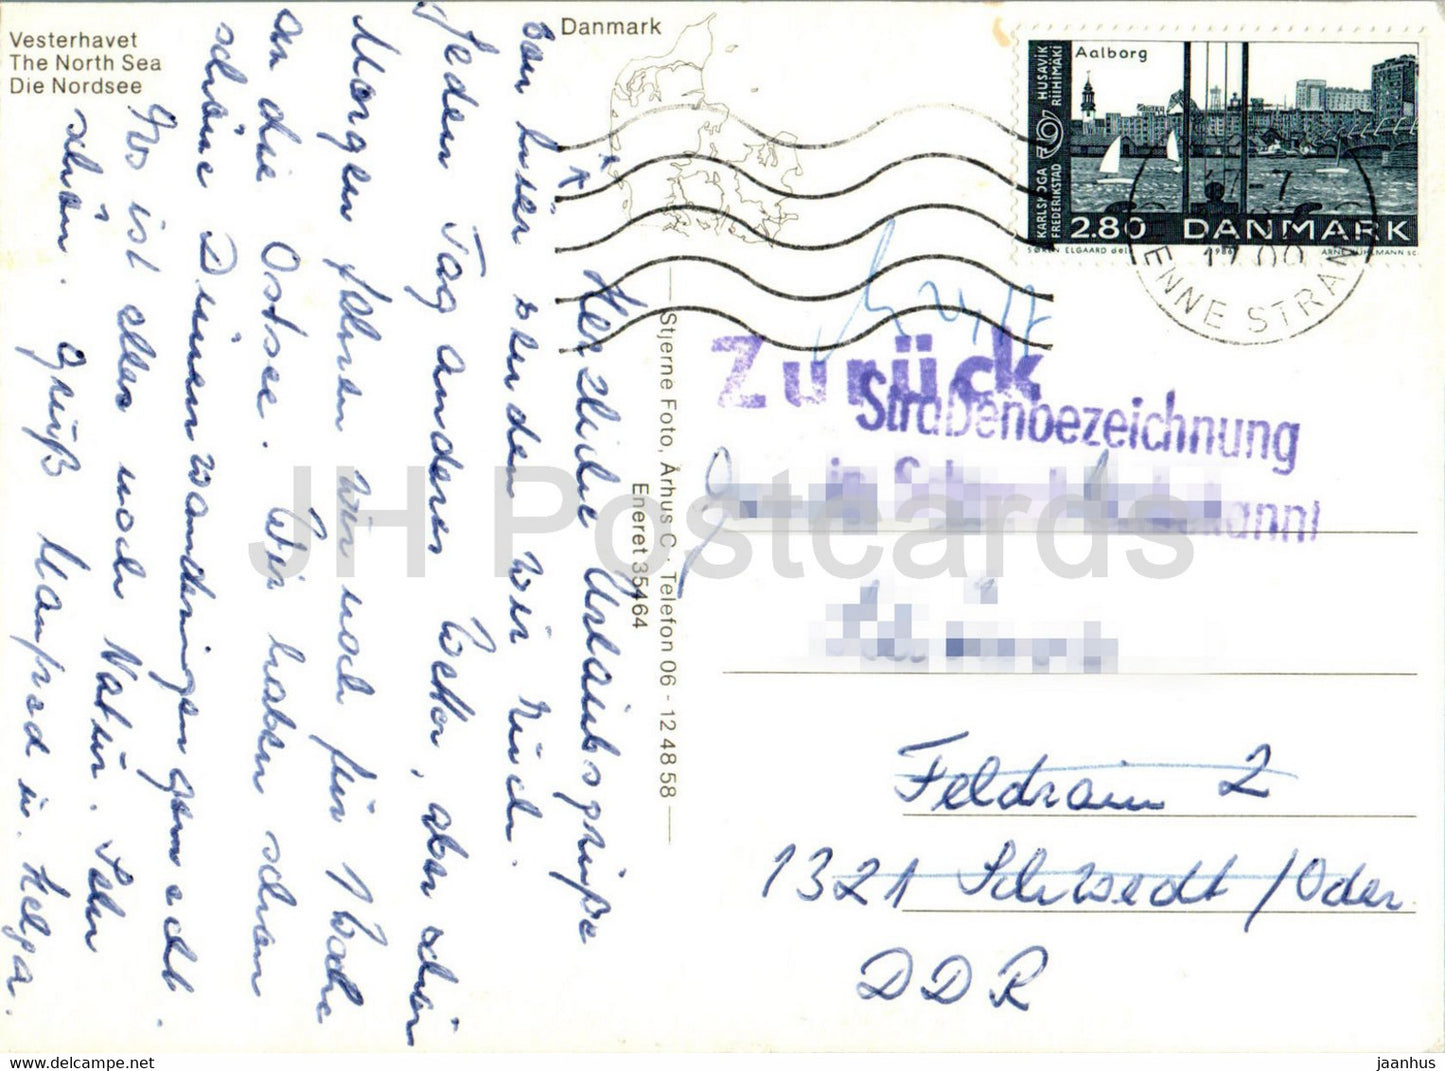 Vesterhavet
The North Sea
Die Nordsee
Danmark
Herzliche Urlaubsgrüße
von hier senden wir Euch.
Jeden Tag anderes Wetter, aber schön
Morgen fahren wir noch für 1 Woche
an die Ostsee. Wir haben schon
schöne Dünenwanderungen gemacht.
Es ist alles noch Natur. Sehr
schön. Gruß Manfred u. Helga.
Stjerne Foto, Århus C. Telefon 06 - 12 48 58
Eneret 35464
Aalborg
HUSAVIK
RIIHIMÄKI
KARLSKOGA
FREDERIKSTAD
2.80 DANMARK
SØREN ELGAARD del. 1986 ARNE KÜHLMANN sc.
17-7
17.00
HENNE STRAND
Zurück
Straßenbezeichnung
in
Feldrain 2
1321 Schwedt/Oder
DDR
JH Postcards
www.delcampe.net
jaanhus